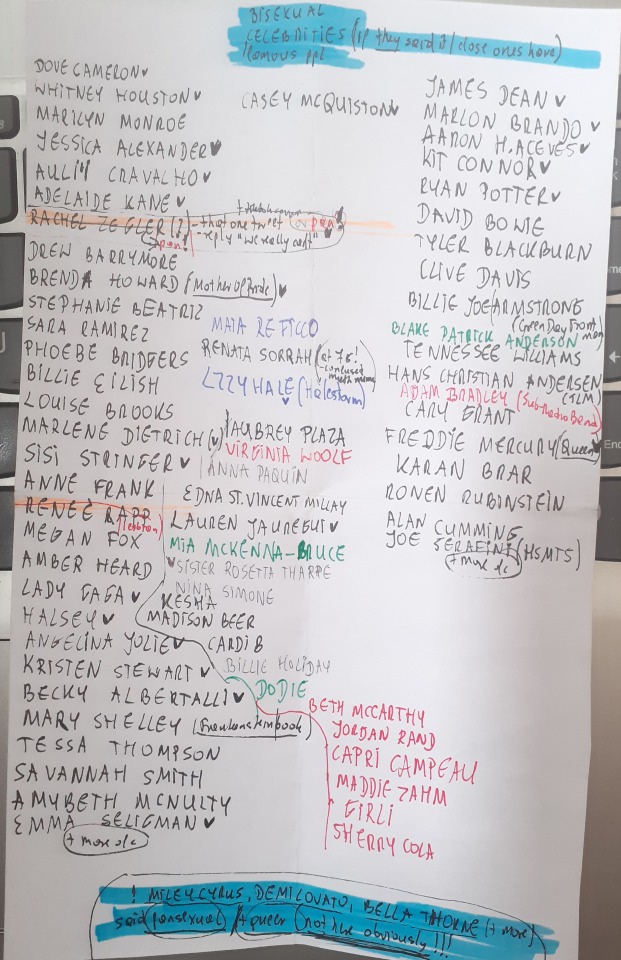 BISEXUAL
CELEBRITIES (if they said it/close ones have)
famous ppl
DOVE CAMERON
WHITNEY HOUSTON
MARILYN MONROE
JESSICA ALEXANDER
AULI'I CRAVALHO
ADELAIDE KANE
RACHEL ZEGLER (?) - that one tweet or pan?
reply "we really can't"
pan!
DREW BARRYMORE
BRENDA HOWARD (Mother of Pride)
STEPHANIE BEATRIZ
SARA RAMIREZ
PHOEBE BRIDGERS
BILLIE EILISH
LOUISE BROOKS
MARLENE DIETRICH
SISI STRINGER
ANNE FRANK
RENEÉ RAPP
(lesbian)
MEGAN FOX
AMBER HEARD
LADY GAGA
HALSEY
ANGELINA JOLIE
KRISTEN STEWART
BECKY ALBERTALLI
MARY SHELLEY (Frankenstein book)
TESSA THOMPSON
SAVANNAH SMITH
AMYBETH MCNULTY
EMMA SELIGMAN
+ more ofc
CASEY MCQUISTON
MAIA REFICCO
RENATA SORRAH (at 76!
confused
math meme)
LZZY HALE (Halestorm)
AUBREY PLAZA
VIRGINIA WOOLF
ANNA PAQUIN
EDNA ST. VINCENT MILLAY
LAUREN JAUREGUI
MIA MCKENNA-BRUCE
SISTER ROSETTA THARPE
NINA SIMONE
KESHA
MADISON BEER
CARDI B
BILLIE HOLIDAY
DODIE
BETH MCCARTHY
JORDAN RAND
CAPRI CAMPEAU
MADDIE ZAHM
GIRLI
SHERRY COLA
JAMES DEAN
MARLON BRANDO
AARON H. ACEVES
KIT CONNOR
RYAN POTTER
DAVID BOWIE
TYLER BLACKBURN
CLIVE DAVIS
BILLIE JOE ARMSTRONG
(Green Day front man)
BLAKE PATRICK ANDERSON
TENNESSEE WILLIAMS
HANS CHRISTIAN ANDERSEN
(TLM)
ADAM BRADLEY (Sub-Radio Band)
CARY GRANT
FREDDIE MERCURY (Queen)
KARAN BRAR
RONEN RUBINSTEIN
ALAN CUMMING
JOE SERAFINI (HSMTS)
+ more ofc
! MILEY CYRUS, DEMI LOVATO, BELLA THORNE (+ more)
said pansexual / + queer (not here obviously!!!